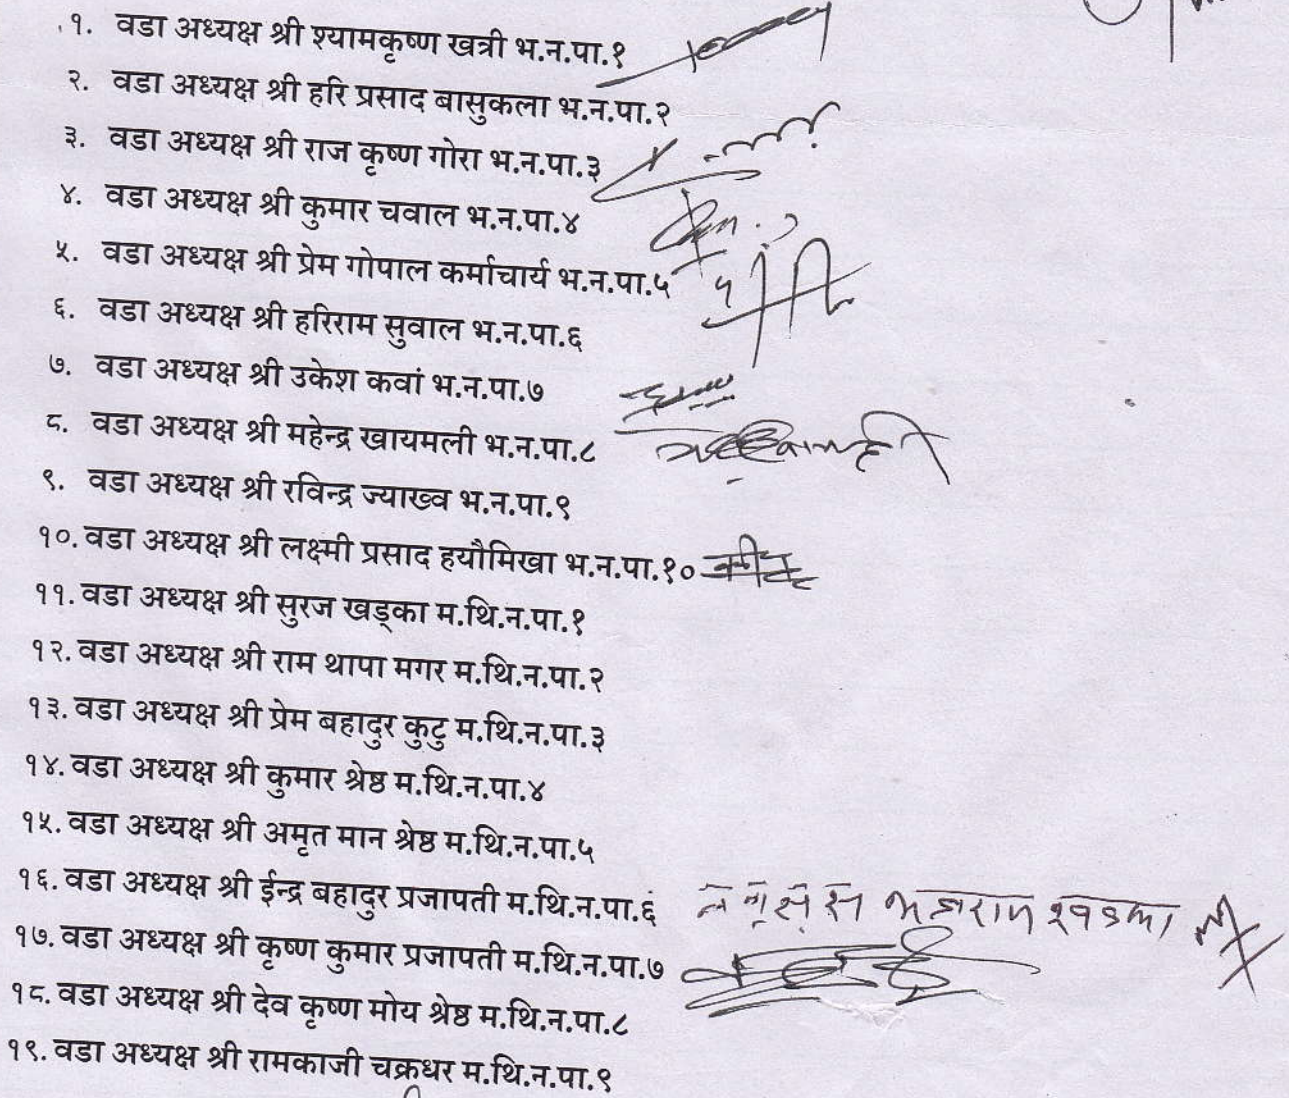 १. वडा अध्यक्ष श्री श्यामकृष्ण खत्री भ.न.पा.१
२. वडा अध्यक्ष श्री हरि प्रसाद बासुकला भ.न.पा.२
३. वडा अध्यक्ष श्री राज कृष्ण गोरा भ.न.पा.३
४. वडा अध्यक्ष श्री कुमार चवाल भ.न.पा.४
५. वडा अध्यक्ष श्री प्रेम गोपाल कर्माचार्य भ.न.पा.५
६. वडा अध्यक्ष श्री हरिराम सुवाल भ.न.पा.६
७. वडा अध्यक्ष श्री उकेश कवां भ.न.पा.७
८. वडा अध्यक्ष श्री महेन्द्र खायमली भ.न.पा.८
९. वडा अध्यक्ष श्री रविन्द्र ज्याख्व भ.न.पा.९
१०. वडा अध्यक्ष श्री लक्ष्मी प्रसाद हयौमिखा भ.न.पा.१०
११. वडा अध्यक्ष श्री सुरज खड्का म.थि.न.पा.१
१२. वडा अध्यक्ष श्री राम थापा मगर म.थि.न.पा.२
१३. वडा अध्यक्ष श्री प्रेम बहादुर कुटु म.थि.न.पा.३
१४. वडा अध्यक्ष श्री कुमार श्रेष्ठ म.थि.न.पा.४
१५. वडा अध्यक्ष श्री अमृत मान श्रेष्ठ म.थि.न.पा.५
१६. वडा अध्यक्ष श्री ईन्द्र बहादुर प्रजापती म.थि.न.पा.६ खड्का
१७. वडा अध्यक्ष श्री कृष्ण कुमार प्रजापती म.थि.न.पा.७
१८. वडा अध्यक्ष श्री देव कृष्ण मोय श्रेष्ठ म.थि.न.पा.८
१९. वडा अध्यक्ष श्री रामकाजी चक्रधर म.थि.न.पा.९